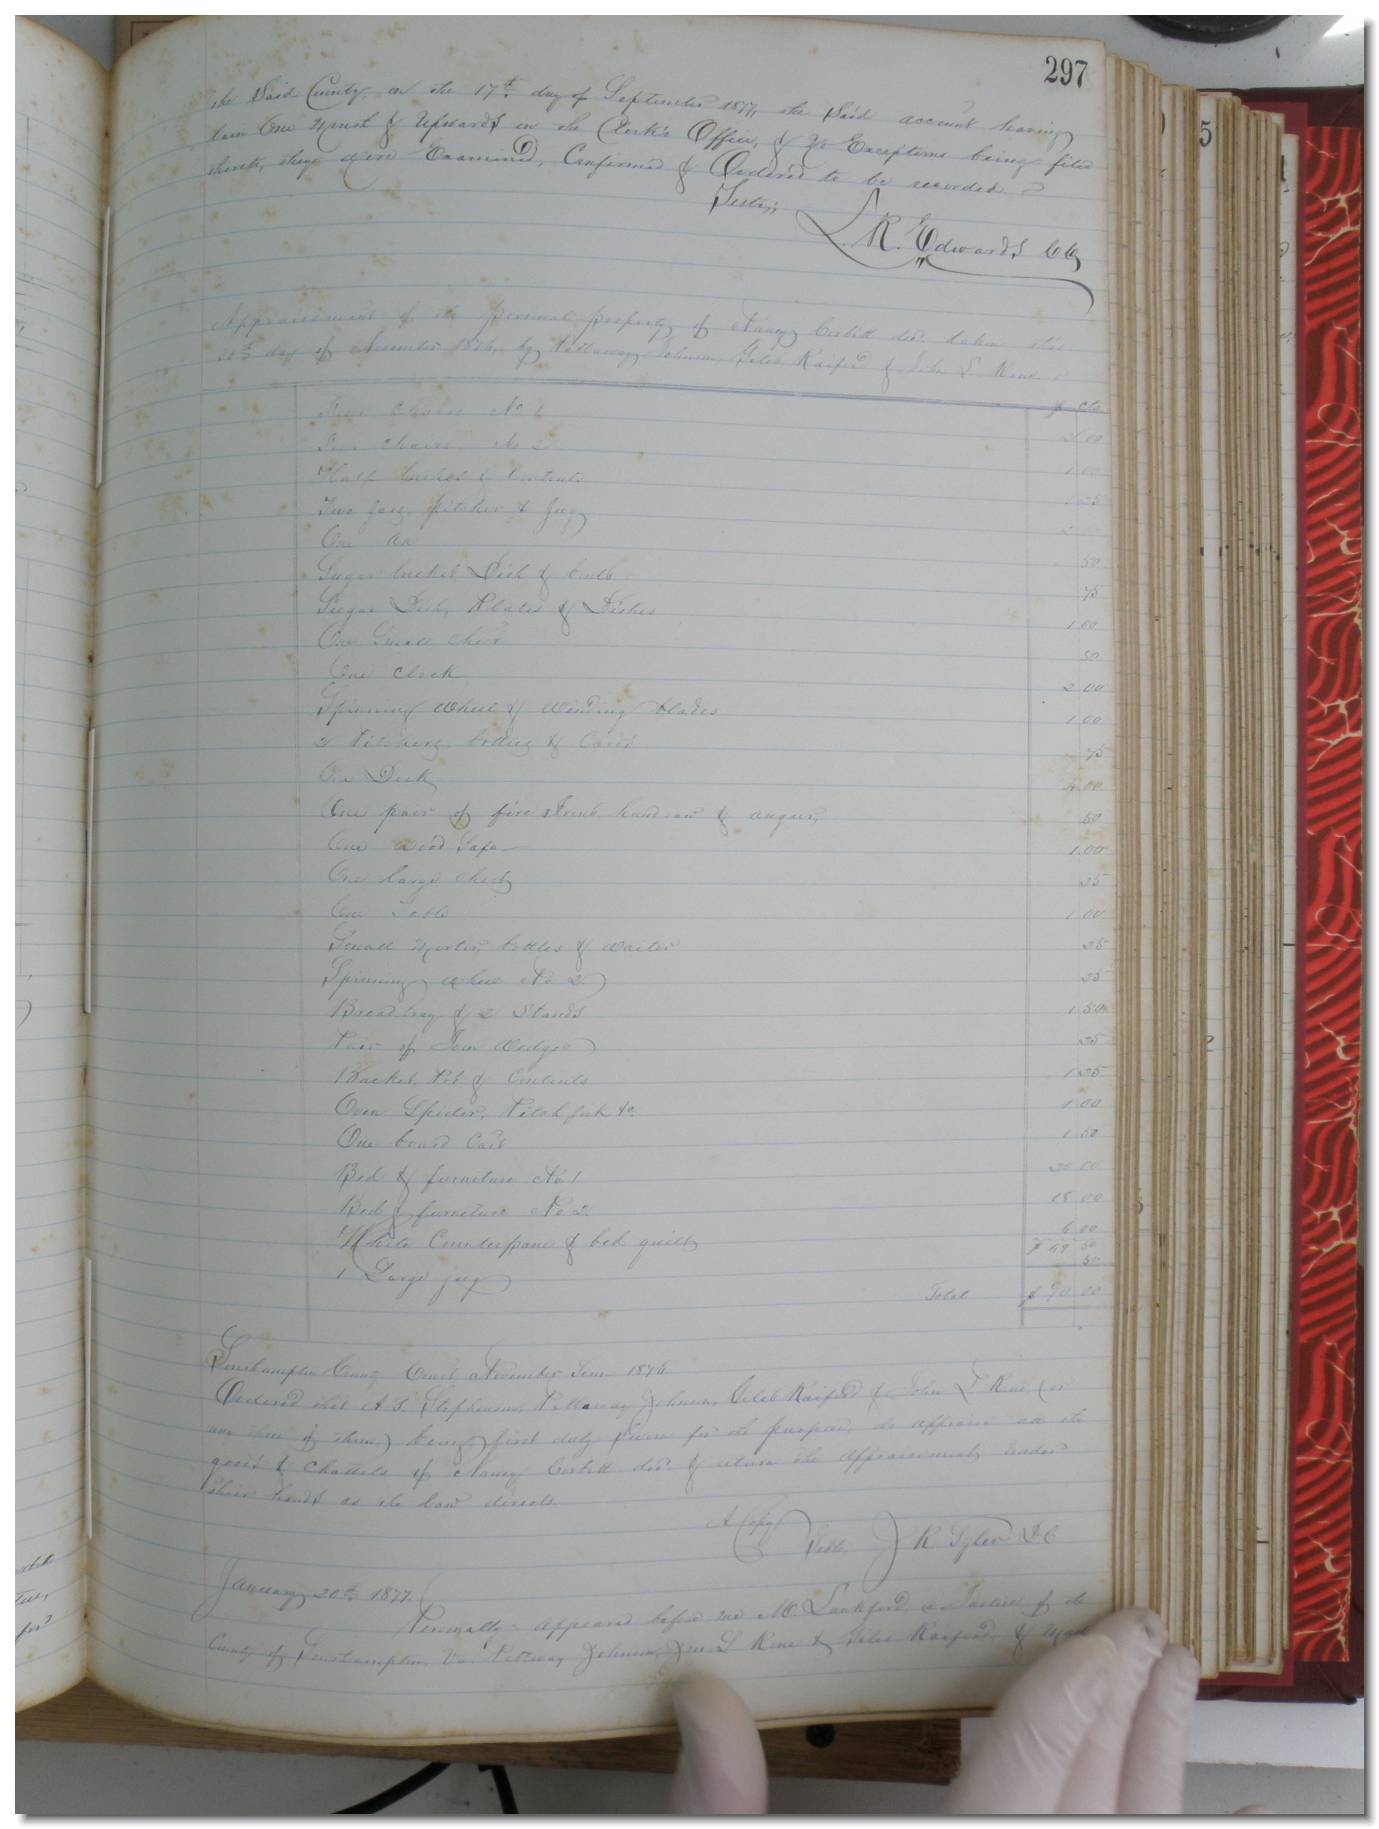 297
the Said County, on the 17th day of September 1877, the Said account having
lain One Month & Upwards in the Clerk's Office, & No Exceptions being filed
thereto, they were Examined, Confirmed & Ordered to be recorded.
Teste;
L. R. Edwards CC
Appraisement of the personal property of Nancy Corbitt decd. taken this
30th day of November 1876, by Pettaway Johnson, Giles Raiford & John L. Rone
$ cts
Four Chairs No 1 2.00
Four Chairs No 2 1 00
Half bushel & Contents 1 25
Two jars, pitcher & Jug 2
One Ax 50
Sugar bucket, Dish & 75
Sugar Dish, Plates & Dishes 1 00
One Small chest 50
One Clock 2 00
Spinning Wheel & Winding blades 1 00
2 Pitchers, bottles & Cards 75
One Desk 4.00
One pair of fire Irons hand saw & augur, 50
One Wood Safe 1.00
One large chest 25
One Table 1 00
Small Mortar, bottles & Waiter 25
Spinning wheel No 2 25
Breadtray & 2 Stands 1 50
Pair of Iron Wedges 25
Basket, Pot & Contents 1 25
Oven Spider, Pitch fork &c 1 00
One board 1 50
Bed & furniture No 1 20 00
Bed & furniture No 2 18 00
White Counterpane & bed quilt 6 00
$ 69 50
1 Large jug 50
Total $ 70 00
Southampton County Court November Term 1876
Ordered that A. S. Stephenson, Pettaway Johnson, Giles Raiford & John L Rone, (or
any three of them,) being first duly Sworn for the purpose, do appraise the
goods & Chattels of Nancy Corbitt decd. & return the Appraisement under
their hands as the law directs.
A Copy
Teste, J R Tyler D C
January 20th 1877.
Personally appeared before me M. Lankford, a Justice of the
County of Southampton Va. Pettway Johnson, Jno. L Rone & Giles Raiford &